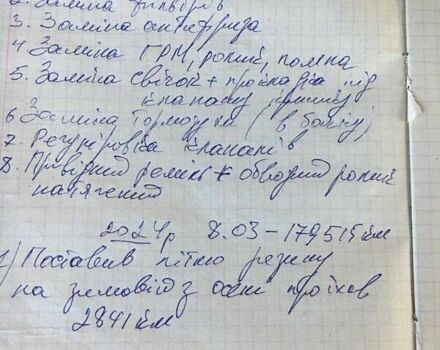 2. Заміна фільтрів
3. Заміна антифриза
4 Заміна ГРМ, ролик, помпа
5. Заміна свічок + прокладка під
клапану кришку
6 Заміна тормозухи (в бачку)
7. Регуліровка клапанів
8. Привідний ремінь + обводний ролик
натяжений
2024р 8.03 – 179515 км
1) Поставив літню резину
на зимовій з осені проїхав
2841 км